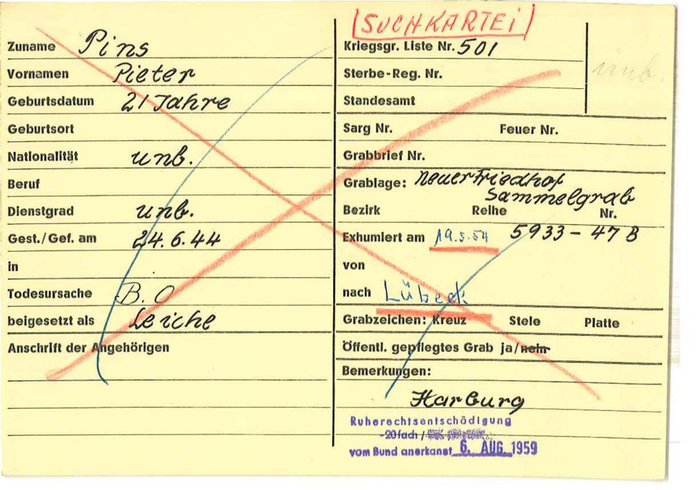 (SUCHKARTEI)
Zuname Pins
Vornamen Pieter
Geburtsdatum 21 Jahre
Geburtsort
Nationalität unb.
Beruf
Dienstgrad unb.
Gest./Gef. am 24.6.44
in
Todesursache B.O
beigesetzt als Leiche
Anschrift der Angehörigen
Kriegsgr. Liste Nr. 501
unb.
Sterbe-Reg. Nr.
Standesamt
Sarg Nr. Feuer Nr.
Grabbrief Nr.
Grablage: Neuer Friedhof
Sammelgrab
Bezirk Reihe Nr.
5933-47 B
Exhumiert am 19.5.54
von
nach Lübeck
Grabzeichen: Kreuz Stele Platte
Öffentl. gepflegtes Grab ja/nein
Bemerkungen:
Harburg
Ruherechtsentschädigung
-20fach /
vom Bund anerkannt 6. AUG. 1959